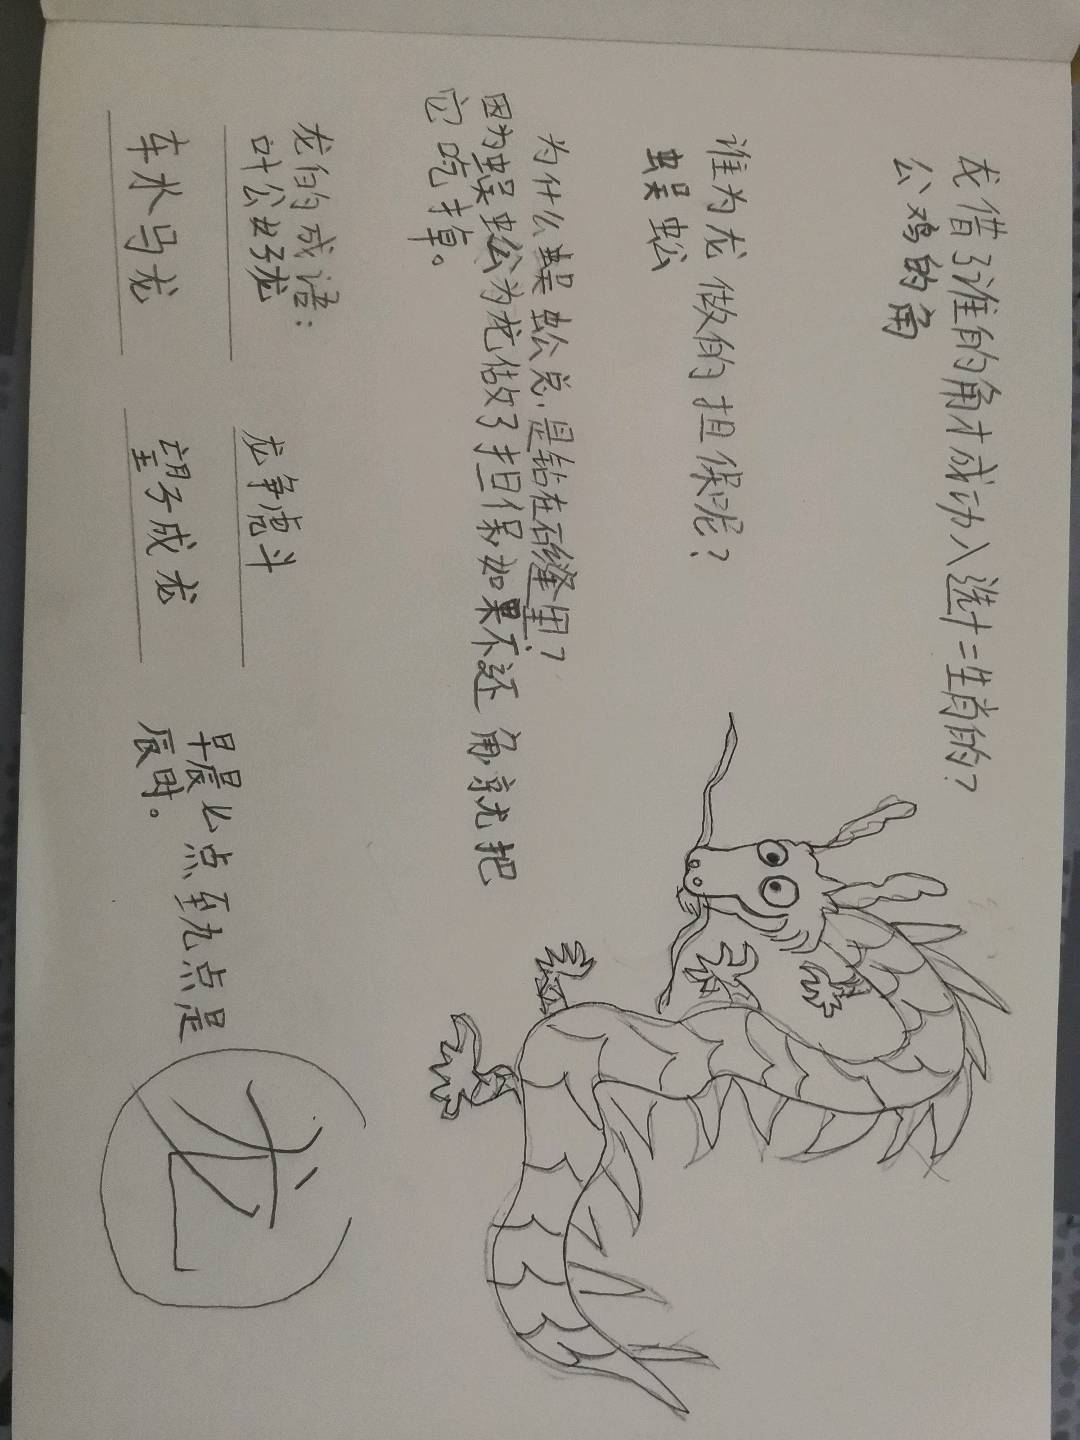 龙借了谁的角才成功入选十二生肖的?
公鸡的角
谁为龙做的担保呢?
蜈蚣
为什么蜈蚣总是钻在石缝里?
因为蜈蚣为龙做了担保,如果不还角,就把
它吃掉。
龙的成语:
叶公好龙 龙争虎斗
车水马龙 望子成龙
早晨七点至九点是
辰时。
龙